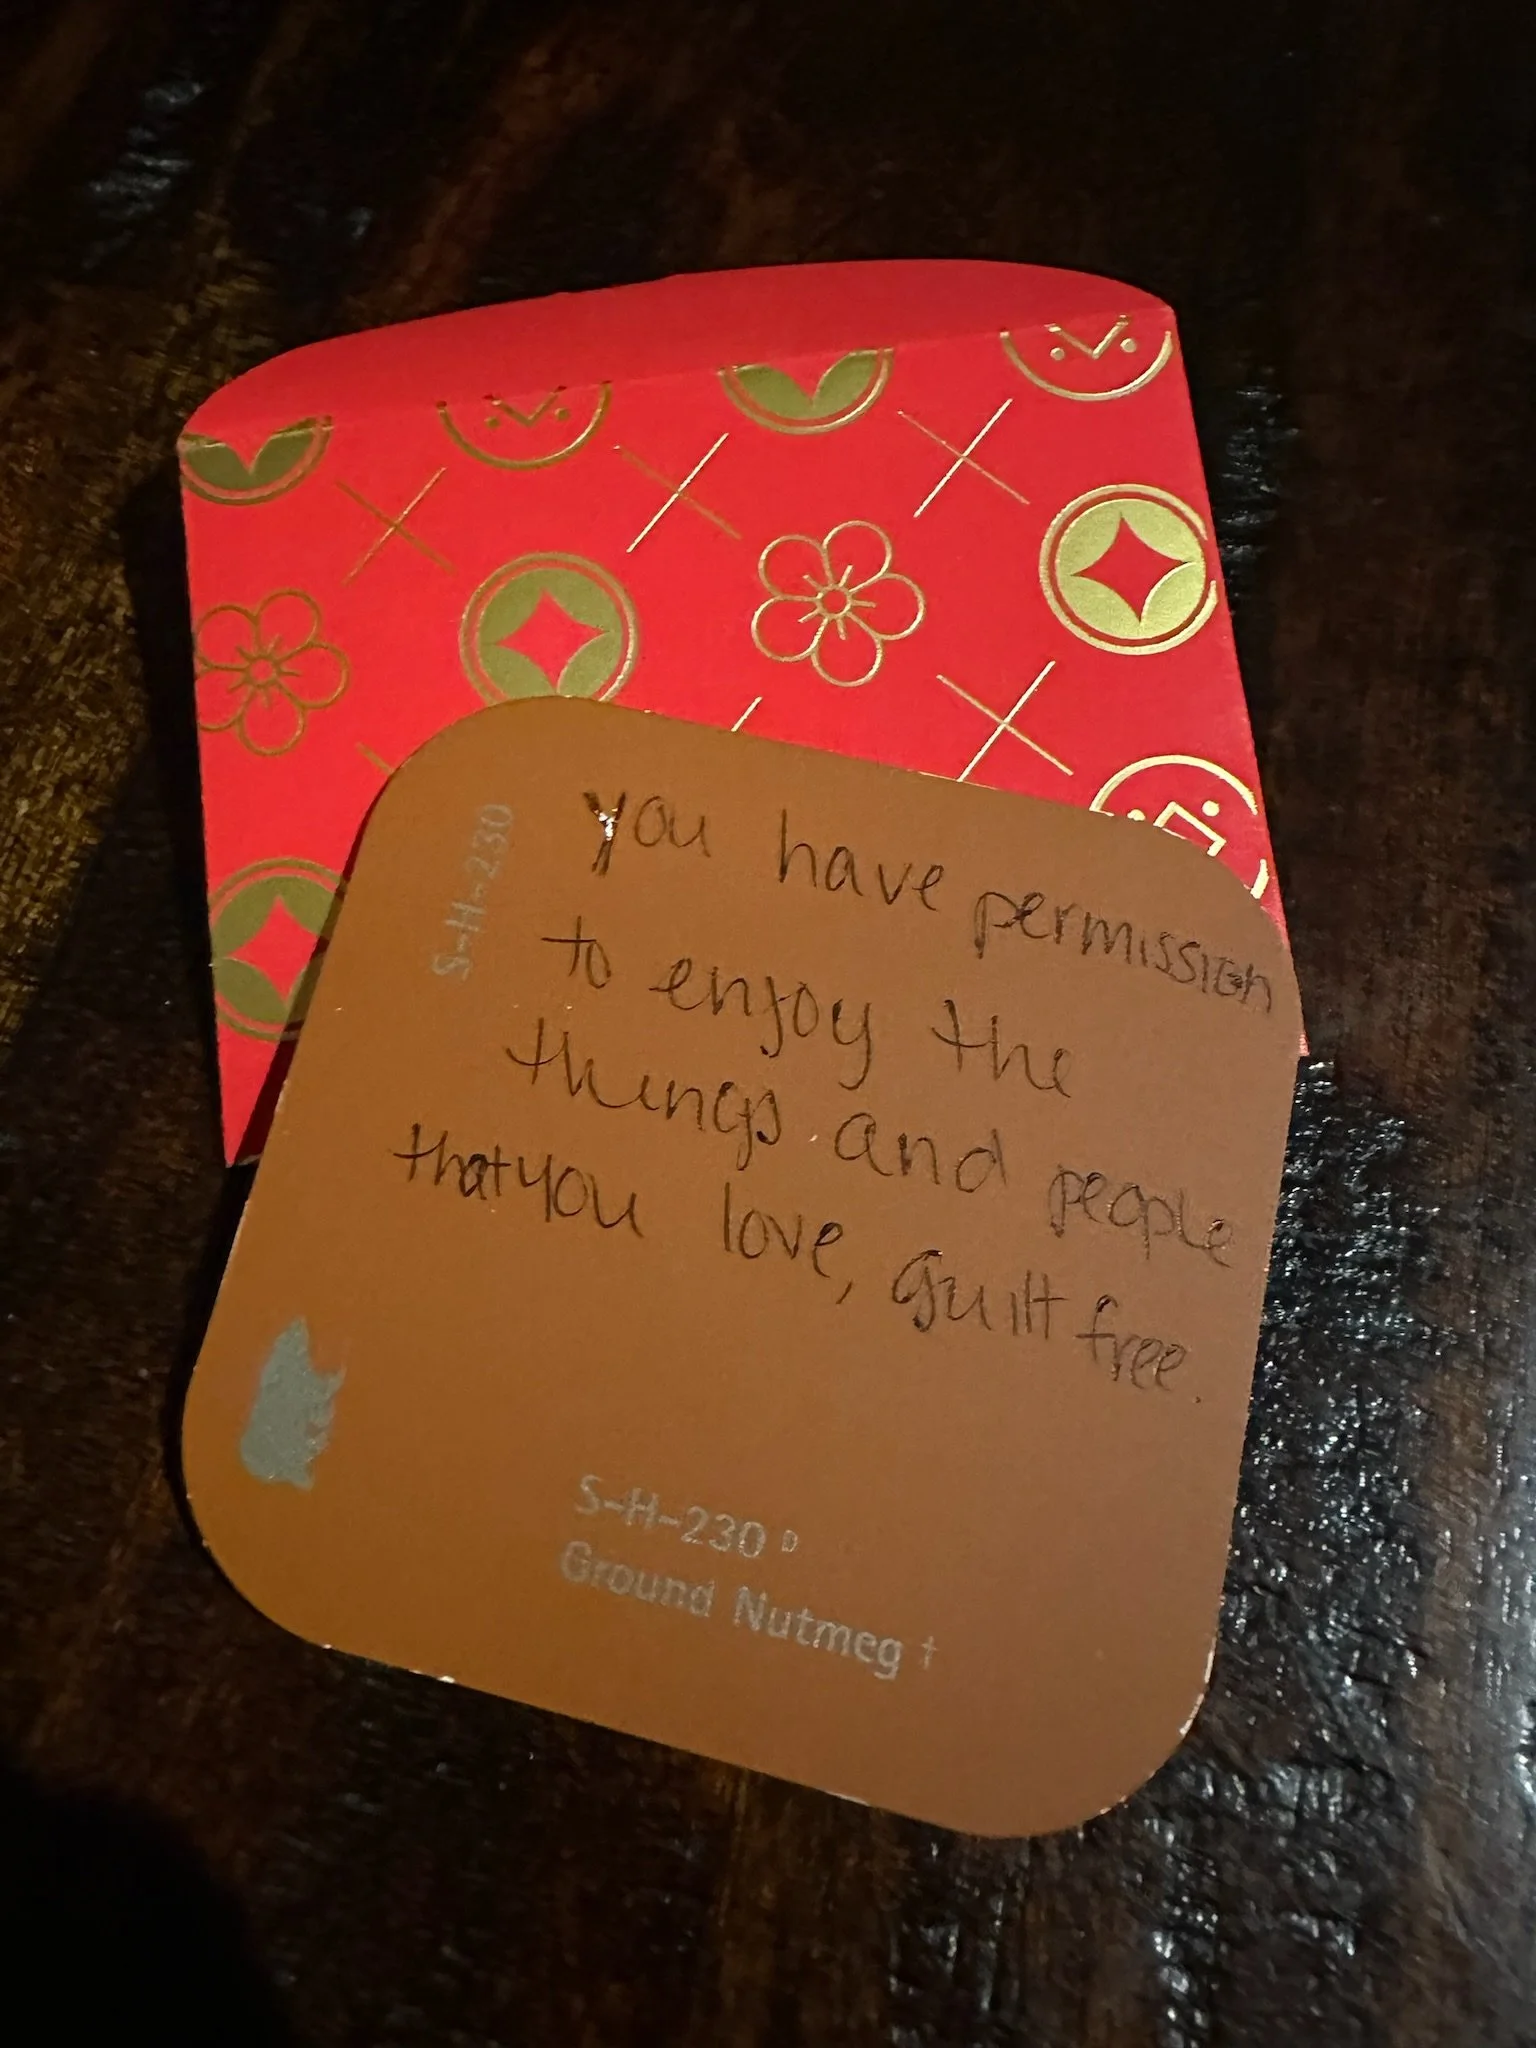 S-H-230
you have permission
to enjoy the
things and people
that you love, guilt free.
S-H-230 D
Ground Nutmeg †